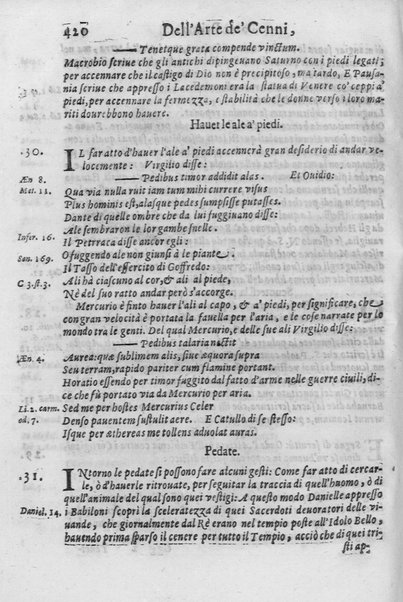 420 Dell'Arte de' Cenni,
—— Tenetque grata compende vinctum.
Macrobio scriue che gli antichi dipingeuano Saturno con i piedi legati;
per accennare che il castigo di Dio non è precipitoso, ma tardo, E Pausa-
nia scriue che appresso i Lacedemoni era la statua di Venere co' ceppi a'
piedi, per accennare la fermezza, e stabilità che le donne verso i loro ma-
riti dourebbono hauere.
Hauer le ale a' piedi.
.30. IL far atto d'hauer l'ale a' piedi accennerà gran desiderio di andar ve-
locemente: Virgilio disse:
Æn 8. —— Pedibus timor addidit alas. Et Ouidio:
Met. 13. Qua via nulla ruit iam tum mihi currere visus
Plus hominis est, alasque pedes sumpsisse putasses.
Dante di quelle ombre che da lui fuggiuano disse:
Infer. 16. Ale sembraron le lor gambe snelle.
Il Petrraca disse ancor egli:
Son. 169. O fuggendo ale non giunsi à le piante.
Il Tasso dell'essercito di Goffredo:
C 3. st. 3. Ali hà ciascuno al cor, & ali al piede,
Nè del suo ratto andar però s'accorge.
Mercurio è finto hauer l'ali al capo, & a' piedi, per significare, che
con gran velocità è portata la fauella per l'aria, e le cose narrate per lo
mondo tra le genti. Del qual Mercurio, e delle sue ali Virgilio disse:
—— Pedibus talaria nectit
Æn. 4. Aurea: quæ sublimem alis, siue æquora supra
Seu terram, rapido pariter cum flamine portant.
Horatio essendo per timor fuggito dal fatto d'arme nelle guerre ciuili, di-
ce che fù portato via da Mercurio per aria.
Li. 2. carm. Sed me per hostes Mercurius Celer
od. 7. Denso pauentem sustulit aere. E Catullo di se stesso:
Isque per æthereas me tollens aduolat auras.
Pedate.
.31. INtorno le pedate si possono fare alcuni gesti: Come far atto di cercar-
le, ò d'hauerle ritrouate, per seguitar la traccia di quell'huomo, ò di
quell'animale del qual sono quei vestigi: A questo modo Danielle appresso
Daniel. 14. i Babiloni scoprì la sceleratezza di quei Sacerdoti deuoratori delle vi-
uande, che giornalmente dal Rè erano nel tempio poste all'Idolo Bello,
hauendo prima sparso il cenere per tutto il Tempio, acciò che di quei tri-
sti ap-